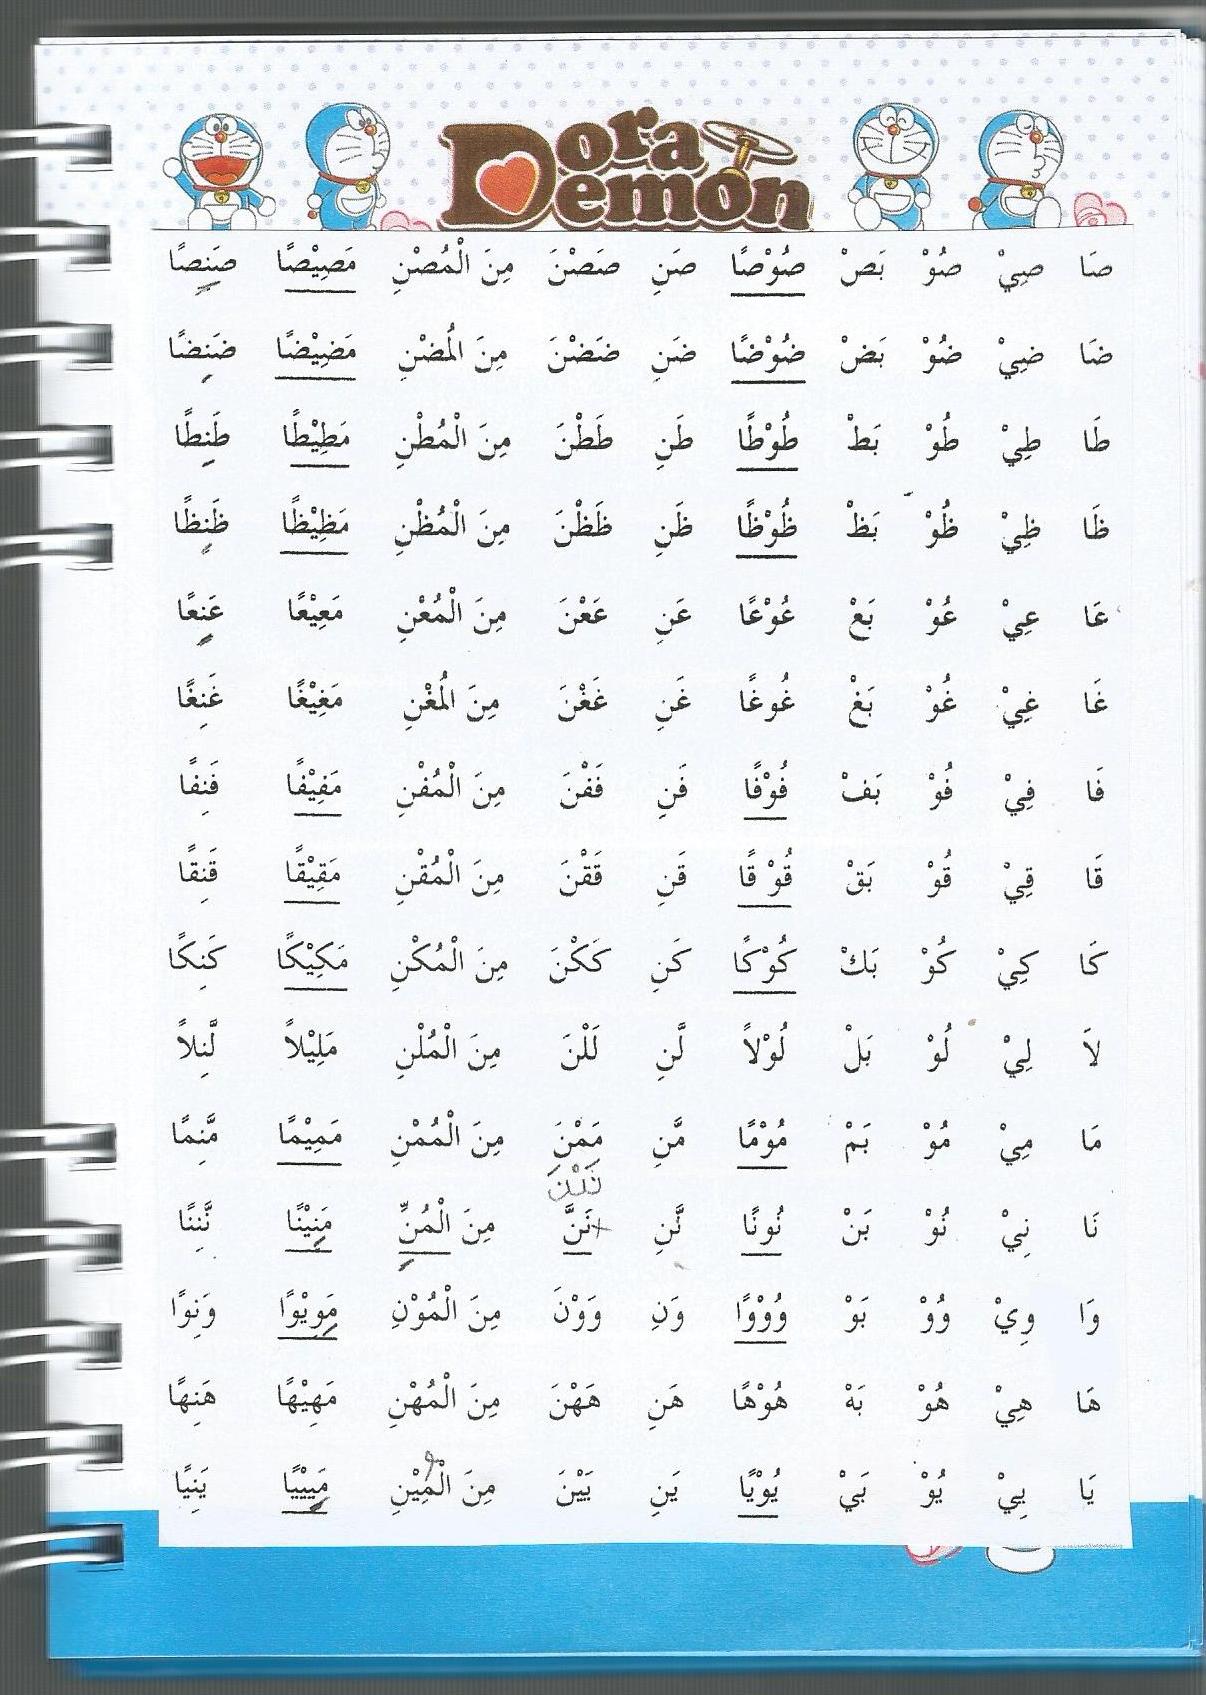 Dora
Demon
صَا صِيْ صُوْ بَصْ صُوْصًا صَنِ صَصْنَ مِنَ الْمُصْنِ مَصِيْصًا صَنِصًا
ضَا ضِيْ ضُوْ بَضْ ضُوْضًا ضَنِ ضَضْنَ مِنَ الْمُضْنِ مَضِيْضًا ضَنِضًا
طَا طِيْ طُوْ بَطْ طُوْطًا طَنِ طَطْنَ مِنَ الْمُطْنِ مَطِيْطًا طَنِطًا
ظَا ظِيْ ظُوْ بَظْ ظُوْظًا ظَنِ ظَظْنَ مِنَ الْمُظْنِ مَظِيْظًا ظَنِظًا
عَا عِيْ عُوْ بَعْ عُوْعًا عَنِ عَعْنَ مِنَ الْمُعْنِ مَعِيْعًا عَنِعًا
غَا غِيْ غُوْ بَغْ غُوغًا غَنِ غَغْنَ مِنَ الْمُغْنِ مَغِيْغًا غَنِغًا
فَا فِيْ فُوْ بَفْ فُوْفًا فَنِ فَفْنَ مِنَ الْمُفْنِ مَفِيْفًا فَنِفًا
قَا قِيْ قُوْ بَقْ قُوْقًا قَنِ قَقْنَ مِنَ الْمُقْنِ مَقِيْقًا قَنِقًا
كَا كِيْ كُوْ بَكْ كُوْكًا كَنِ كَكْنَ مِنَ الْمُكْنِ مَكِيْكًا كَنِكًا
لاَ لِيْ لُوْ بَلْ لُوْلاً لَّنِ لَلْنَ مِنَ الْمُلْنِ مَلِيْلاً لَّنِلاً
مَا مِيْ مُوْ بَمْ مُوْمًا مَّنِ مَمْنَ مِنَ الْمُمْنِ مَمِيْمًا مَّنِمًا
نَا نِيْ نُوْ بَنْ نُونًا نَّنِ نَنَّ مِنَ الْمُنِّ مَنِيْنًا نَّنِنًا
وَا وِيْ وُوْ بَوْ وُوْوًا وَنِ وَوْنَ مِنَ الْمُوْنِ مَوِيْوًا وَنِوًا
هَا هِيْ هُوْ بَهْ هُوْهًا هَنِ هَهْنَ مِنَ الْمُهْنِ مَهِيْهًا هَنِهًا
يَا يِيْ يُوْ بَيْ يُوْيًا يَنِ يَيْنَ مِنَ الْمِيْنِ مَيِيْيًا يَنِيًا